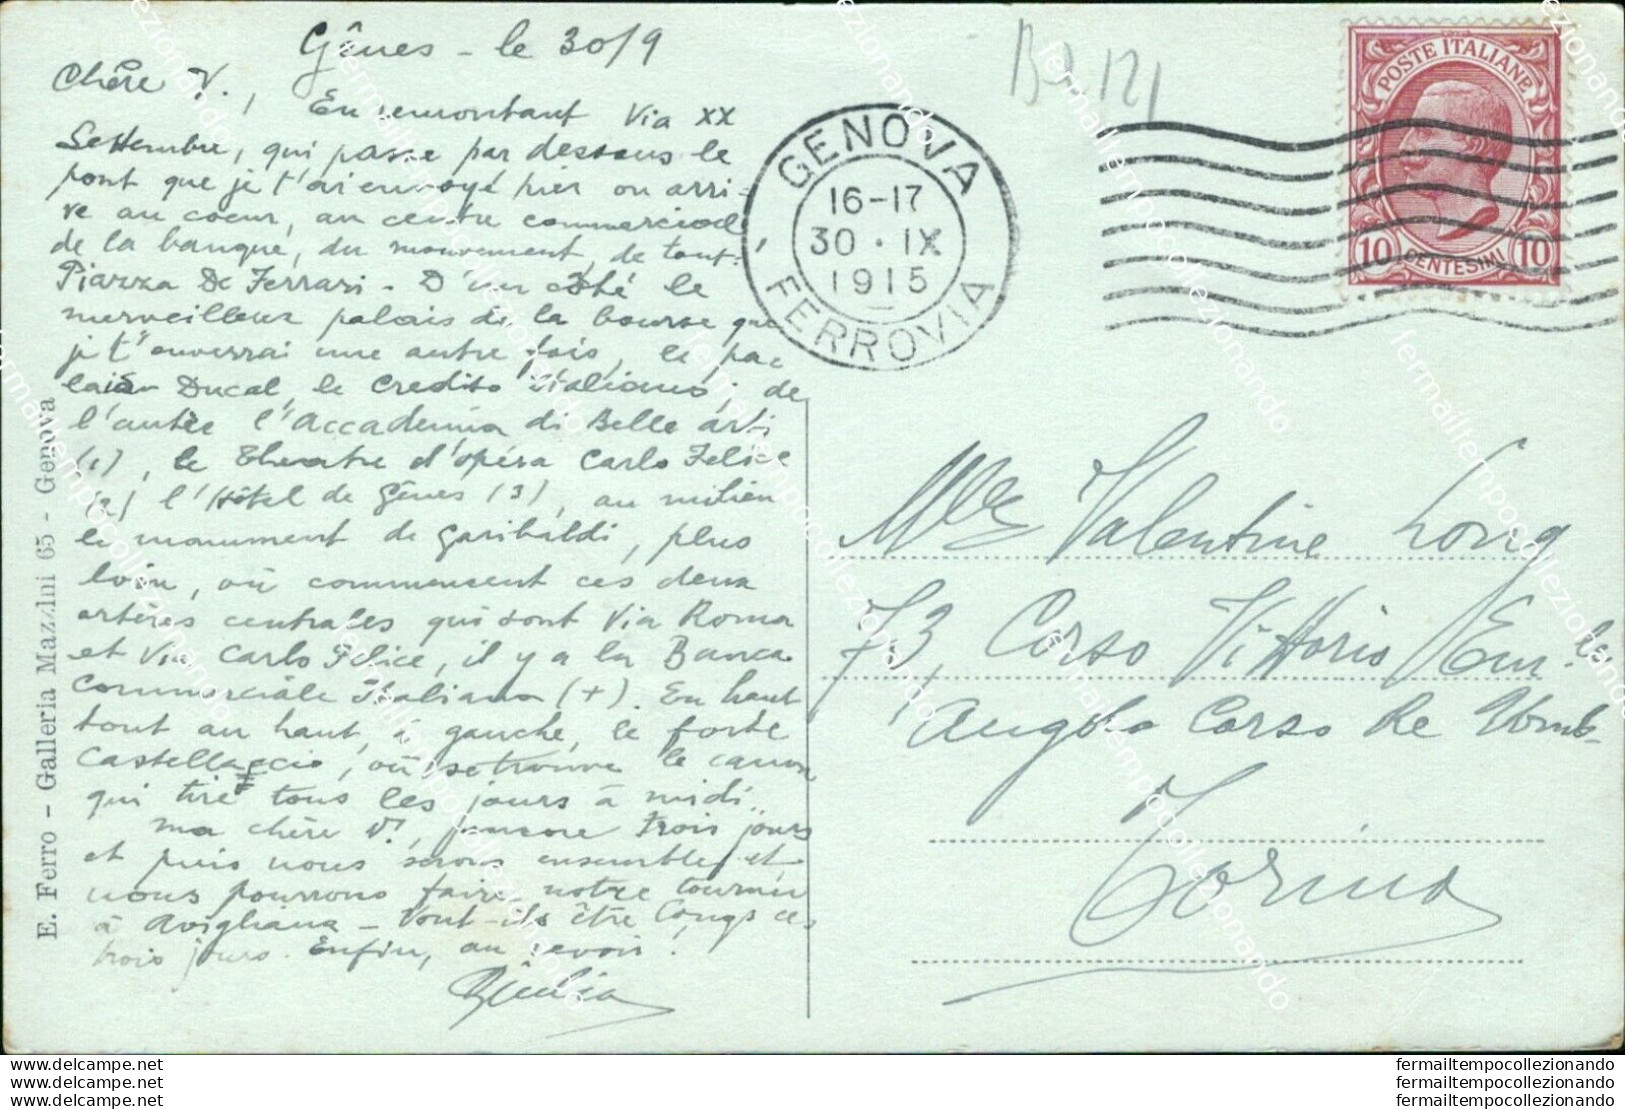 Gênes - le 30/9
Chère V.,
En remontant Via XX
Settembre, qui passe par dessous le
pont que je t'ai envoyé hier on arri-
ve au coeur, au centre commercial,
de la banque, du mouvement, de tout:
Piazza De Ferrari - D'un côté le
merveilleux palais de la bourse que
je t'enverrai une autre fois, le pa-
lais Ducal, le Credito Italiano; de
l'autre l'Accademia di Belle arti
(1), le Theatre d'opéra Carlo Felice
(2) l'Hôtel de Gênes (3), au milieu
le monument de Garibaldi, plus
loin, où commencent ces deux
artères centrales qui sont Via Roma
et Via Carlo Felice, il y a la Banca
Commerciale Italiana (+). En haut
tout au haut, à gauche, le forte
Castellaccio, où se trouve le canon
qui tire tous les jours à midi.
Ma chère V., encore trois jours
et puis nous serons ensemble, et
nous pourrons faire notre tournée
à Avigliana - Vont-ils être longs ces
trois jours. Enfin, au revoir!
E. Ferro - Galleria Mazzini 65 - Genova
GENOVA
16-17
30 · IX
1915
FERROVIA
POSTE ITALIANE
10 CENTESIMI 10
Mlle Valentine Long
73, Corso Vittorio Em.le
Angolo Corso Re Umb.
Torino
fermailtempocollezionando.com
fermailtempocollezionando.com
fermailtempocollezionando.com
fermailtempocollezionando
fermailtempocollezionando
fermailtempocollezionando